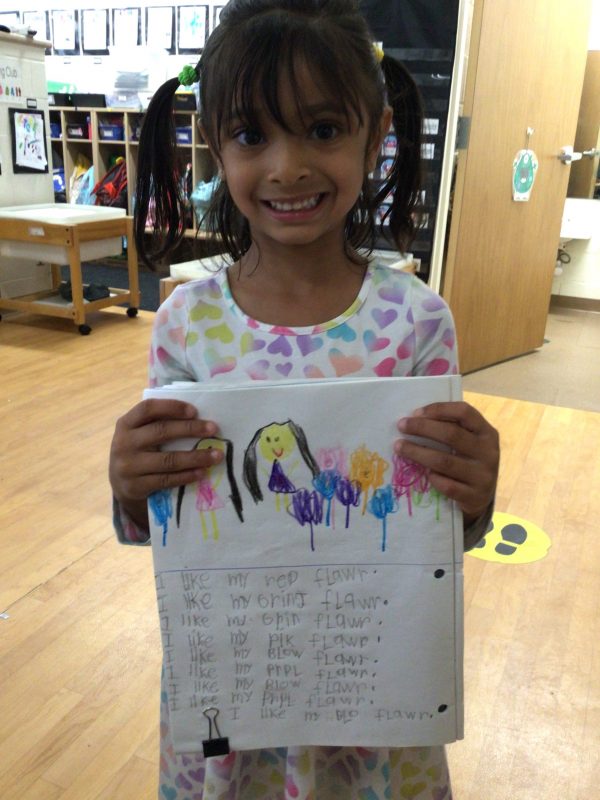 ng Club
I like my rep flawr.
I like my Grinj flawr.
I like my Gpin flawr.
I like my pik flawr.
I like my BLOW flawr.
I like my PrPL flawr.
I like my BLOW flawr.
I like my PrPL flawr.
I like my BLO flawr.